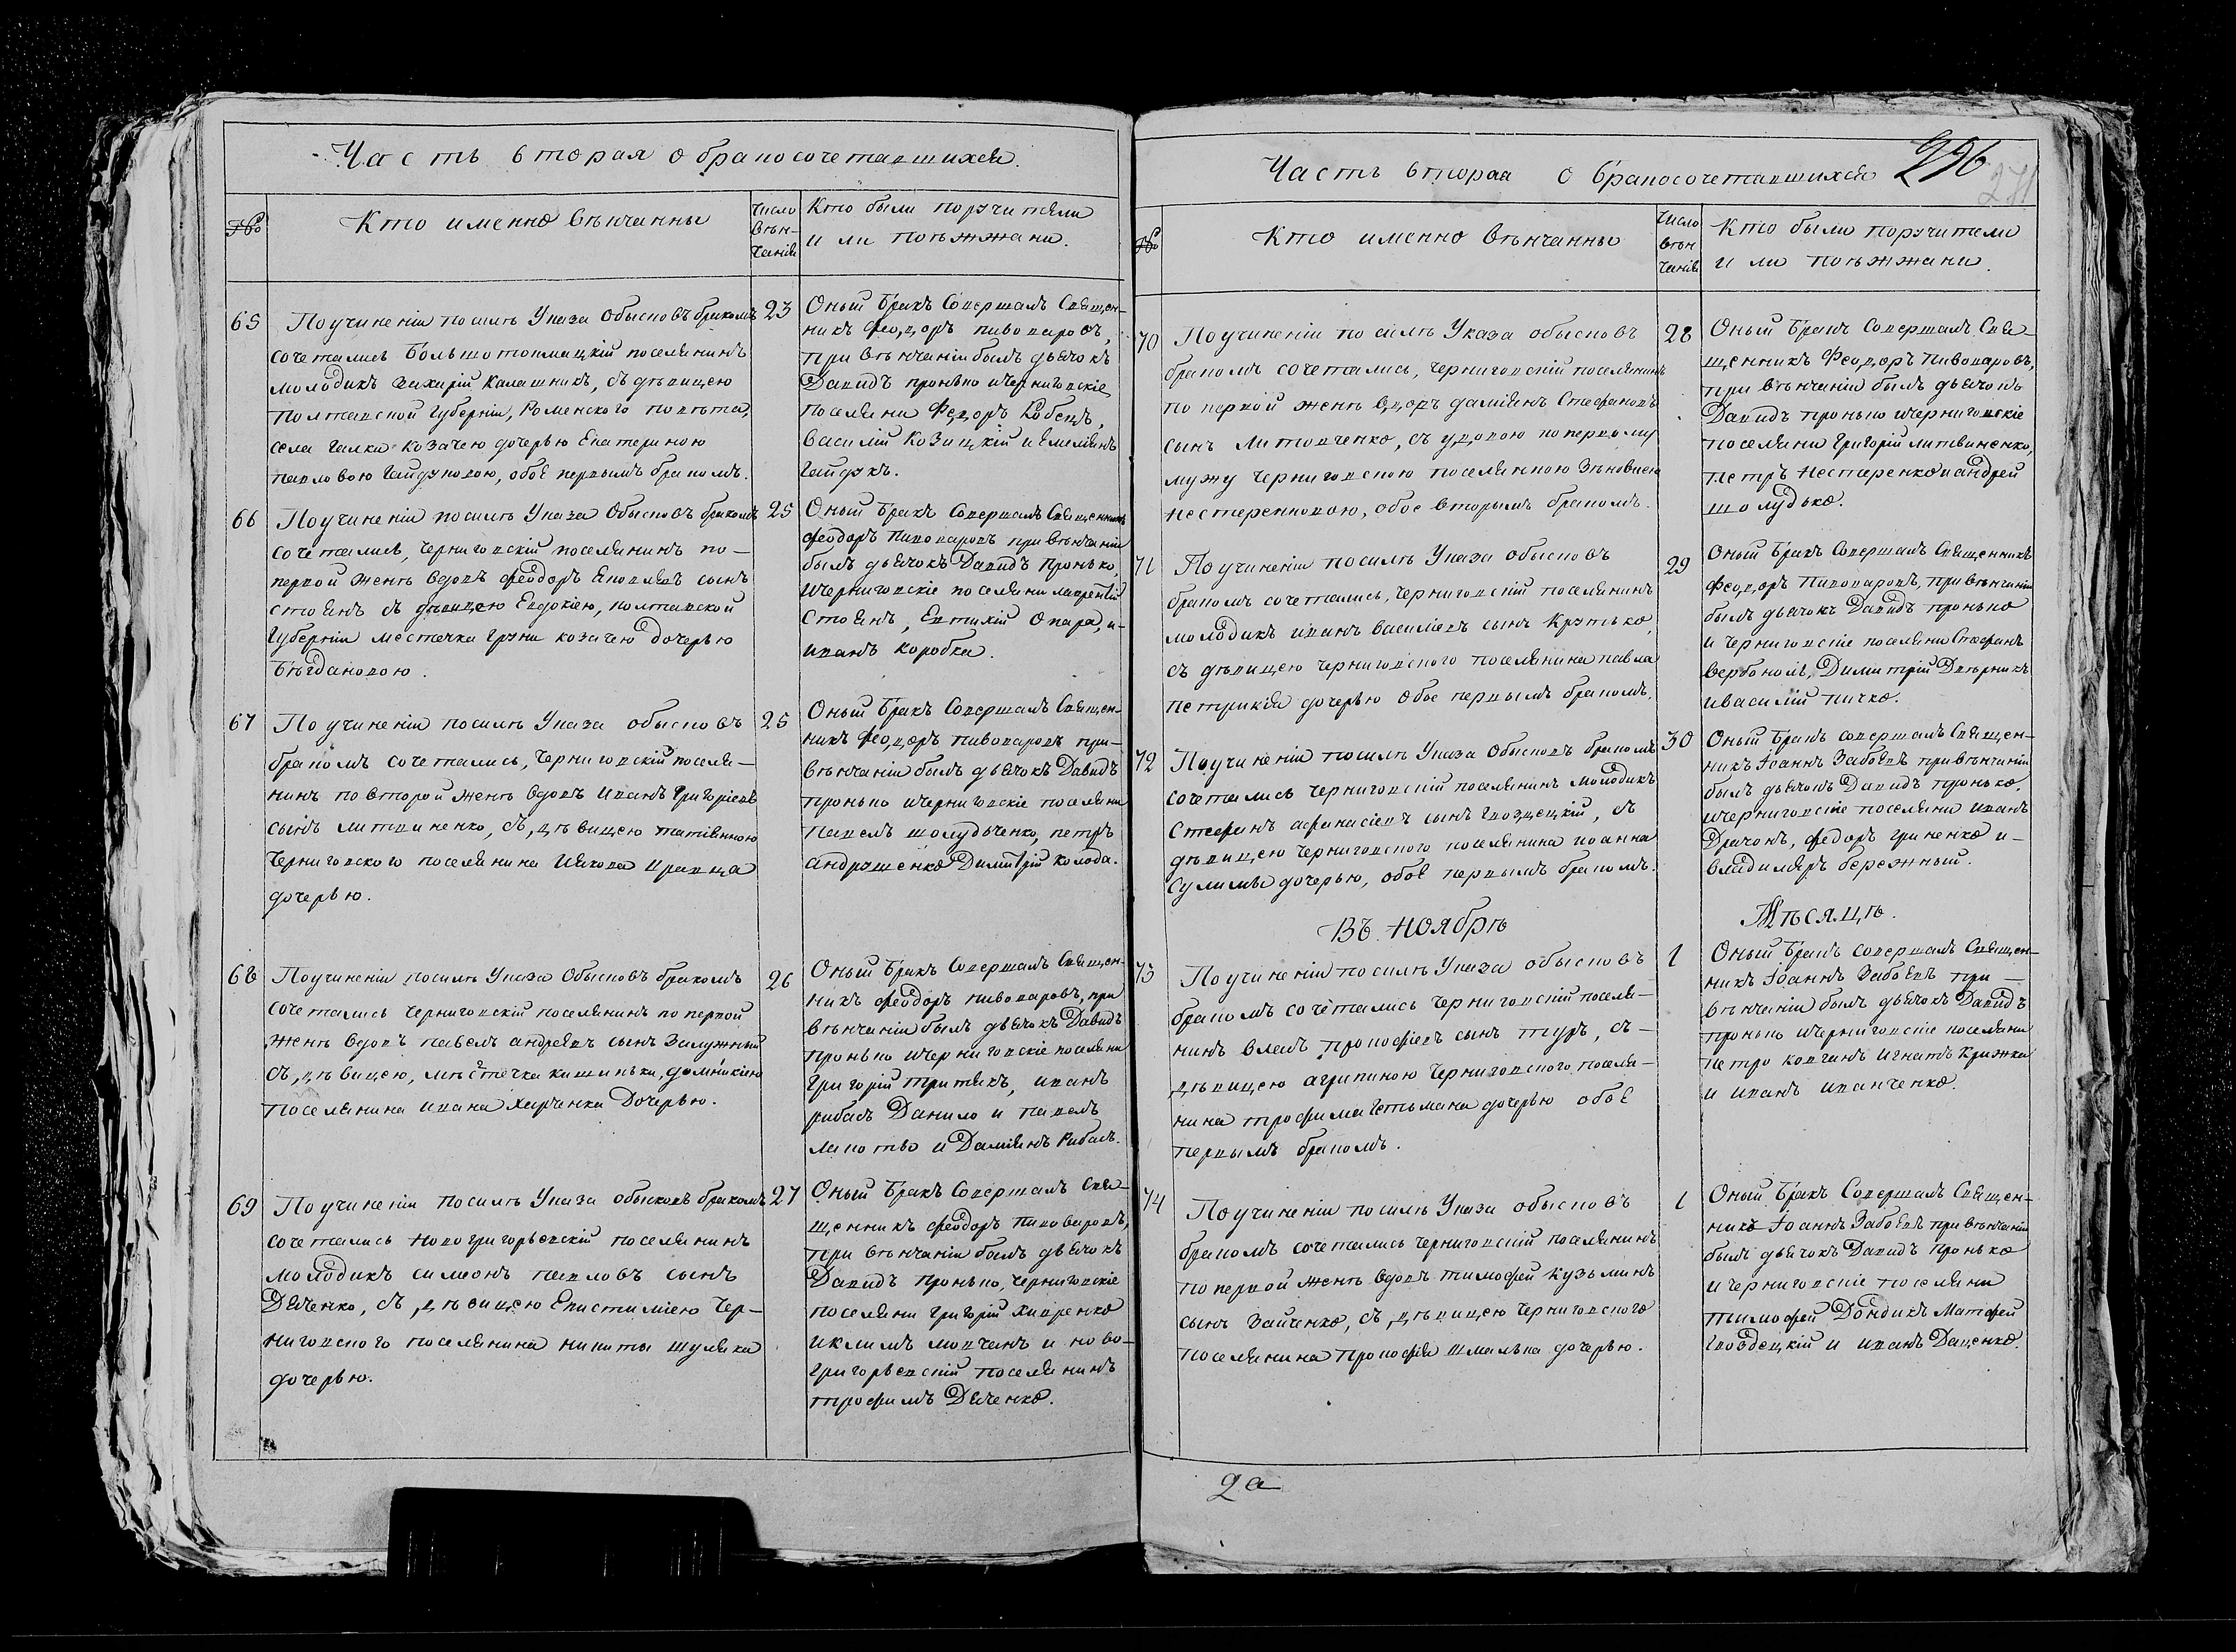 Часть вторая о бракосочетавшихся.
№
Кто именно венчанны
Число
вѣн-
чанія
Кто были поручители
и ли поѣзжжани.
65
По учиненіи по силѣ Указа обысковъ бракомъ
сочетались Большотокмацкій поселянинъ
молодикъ Захарій Калашникъ, съ дѣвицею
Полтавской Губерніи, Роменского повѣта,
села Галки козачею дочерью Екатериною
Павловою Гайдуковою, обоє первымъ бракомъ.
23
Оный Бракъ Совершалъ Священ-
никъ Феодоръ Пивоваровъ,
при вѣнчаніи былъ дьячокъ
Давидъ Пронько и черниговскіе
поселяни Федоръ Кобецъ,
Василій Козицкій и Емелянъ
Гайдукъ.
66
По учиненіи по силѣ Указа Обысковъ бракомъ
сочетались, черниговскій поселянинъ по-
первой женѣ вдовъ Феодоръ Яковлевъ сынъ
Стоянъ съ дѣвицею Евдокією, полтавской
Губерніи местечка Груни козачею дочерью
Бѣгдановою.
25
Оный Бракъ Совершалъ Священникъ
Феодоръ Пивоваровъ при вѣнчаніи
былъ дьячокъ Давидъ Пронько,
и Черниговскіе поселяни Лаврентій
Стоянъ, Евтихій Опара, и-
Иванъ Коробка.
67
По учиненіи по силѣ Указа обысковъ
бракомъ сочетались, Черниговскій поселя-
нинъ по второй женѣ вдовъ Иванъ Григоріевъ
сынъ Литвиненко, съ, дѣвицею
Черниговского поселянина Иякова Кравца
дочерью.
25
Оный Бракъ Совершалъ Священ-
никъ Феодоръ Пивоваровъ при-
вѣнчаніи былъ дьячокъ Давидъ
Пронько и черниговскіе поселяни
Павелъ Шолудьченко, петръ
Андрющенко Димитрій Колода.
68
По учиненіи по силѣ Указа Обысковъ бракомъ
сочетались Черниговскій поселянинъ по первой
женѣ вдовъ Павелъ Андреевъ сынъ Залужный
съ, дѣвицею, мѣстечка Кишиньки, Домникією
поселянина Ивана Харченка Дочерью.
26
Оный Бракъ Совершалъ Священ-
никъ Феодоръ Пивоваровъ, при
вѣнчаніи былъ дьячокъ Давидъ
Пронько и черниговскіе поселяни
Григорій Притыкъ, Иванъ
Рибасъ Данило и Павелъ
и Даміянъ Рибасъ.
69
По учиненіи по силѣ Указа обысковъ бракомъ
сочетались Новогригорьевскій поселянинъ
молодикъ Симеонъ Павловъ сынъ
Дяченко, съ, дѣвицею Епистимією Чер-
ниговского поселянина Никиты Шуляка
дочерью.
27
Оный Бракъ Совершалъ Свя-
щенникъ Феодоръ Пивоваровъ,
при вѣнчаніи былъ дьячокъ
Давидъ Пронько, Черниговскіе
поселяни Григорій
и Климъ Мовчанъ и ново-
григорьевскій поселянинъ
Трофимъ Дяченко.
Часть вторая о Бракосочетавшихся
296
271
№
Кто именно вѣнчанны
Число
вѣн
чанія
Кто были поручители
и ли поѣзжжани.
70
По учиненіи по силѣ Указа обысковъ
бракомъ сочетались, черниговскій поселянинъ
по первой женѣ вдовъ Даміянъ Стефановъ
сынъ Литовченко, съ удовою по первому
мужу черниговскою поселянкою Зѣновиею
Нестеренковою, обое вторымъ бракомъ.
28
Оный Бракъ Совершалъ Свя-
щенникъ Феодоръ Пивоваровъ,
при вѣнчаніи былъ дьячокъ
Давидъ Пронько и черниговскіе
поселяни Григорій Литвиненко,
Петръ Нестеренко и Андрей
Шолудько.
71
По учиненіи по силѣ Указа обысковъ
бракомъ сочетались, Черниговскій поселянинъ
молодикъ Иванъ Василіевъ сынъ Крутько,
съ дѣвицею черниговского поселянина Павла
Петрикія дочерью обое первымъ бракомъ.
29
Оный Бракъ Совершалъ Священникъ
Феодоръ Пивоваровъ, при вѣнчаніи
былъ дьячокъ Давидъ Пронько
и Черниговскіе поселяни Стефанъ
Верболозъ, Димитрій Дверникъ
и Василій Пичко.
72
По учиненіи по силѣ Указа Обысковъ бракомъ
сочетались Черниговскій поселянинъ молодикъ
Стефанъ Афанасіевъ сынъ Гвоздецкій, съ
дѣвицею черниговского поселянина Иоанна
Сулимы дочерью, обоє первымъ бракомъ.
30
Оный Бракъ совершалъ Священ-
никъ Іоаннъ Забоевъ при вѣнчаніи
былъ дьячокъ Давидъ Пронько,
и черниговскіе поселяни Иванъ
Драчонъ, Федоръ Гриненко и-
Владимиръ Бережный.
Въ Ноябрѣ
Мѣсяцѣ.
73
По учиненіи по силѣ Указа обысковъ
бракомъ сочетались Черниговскій поселя-
нинъ Власъ Прокофіевъ сынъ Туръ, съ-
дѣвицею Агрипиною Черниговского поселя-
нина Трофима Гетьмана дочерью обоє
первымъ бракомъ.
1
Оный Бракъ совершалъ Священ-
никъ Іоаннъ Забоевъ при-
вѣнчаніи былъ дьячокъ Давидъ
Пронько и черниговскіе поселяни
Петро Ковганъ Игнатъ Крижка
и Иванъ Иванченко.
74
По учиненіи по силѣ Указа обысковъ
бракомъ сочетались Черниговскій поселянинъ
по первой женѣ вдовъ Тимофей Кузьминъ
сынъ Зайченко, съ, дѣвицею Черниговского
поселянина Прокофія Шмалька дочерью.
1
Оный Бракъ Совершалъ Священ-
никъ Іоаннъ Забоевъ при вѣнчаніи
былъ дьячокъ Давидъ Пронько
и Черниговскіе поселяни
Тимофей Дондикъ Матфей
Гвоздецкій и Иванъ Даценко.
2а